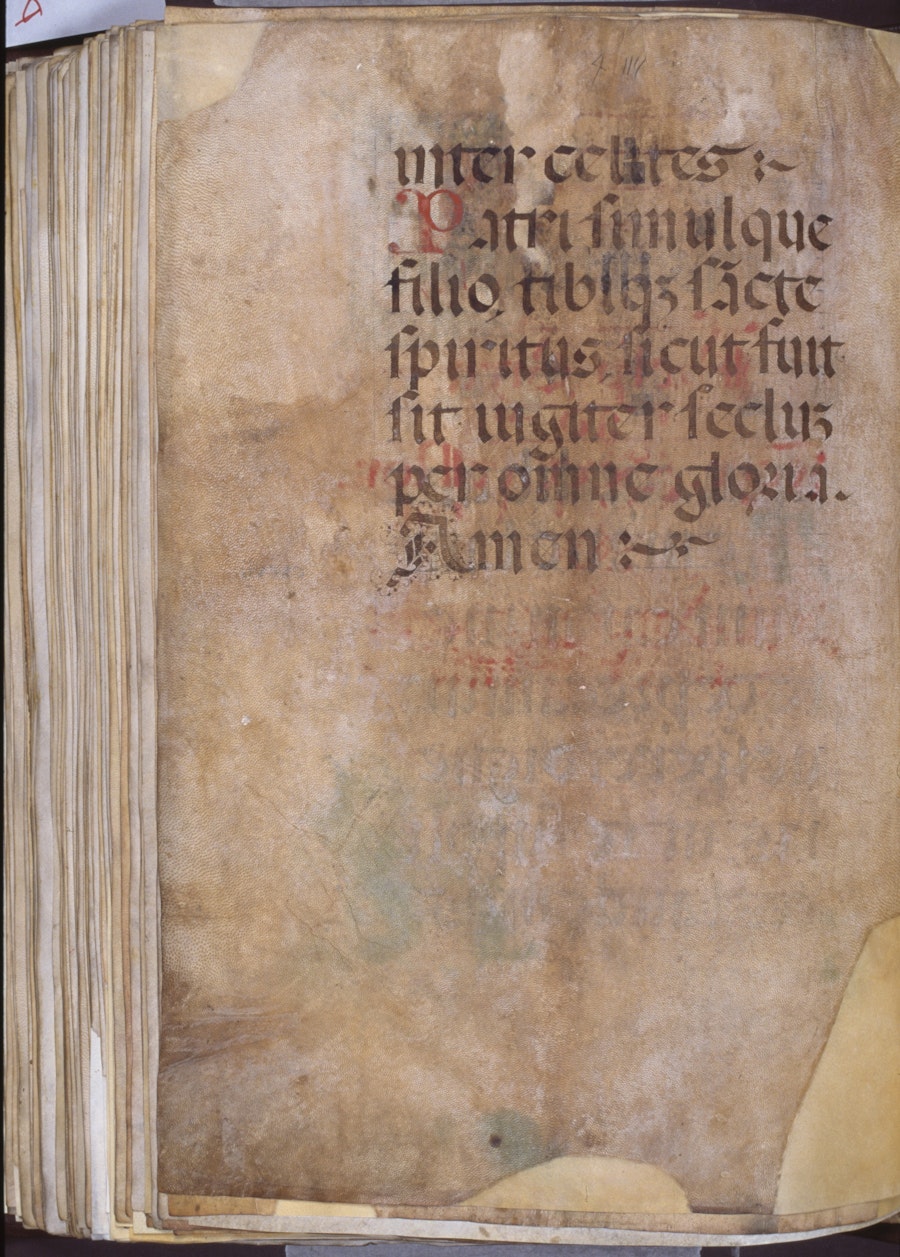 inter celites :~
Patri simulque
filio, tibiqꝫ sācte
spiritus, sicut fuit
sit iugiter secluꝫ
per om̄ne gloria.
Amen :~